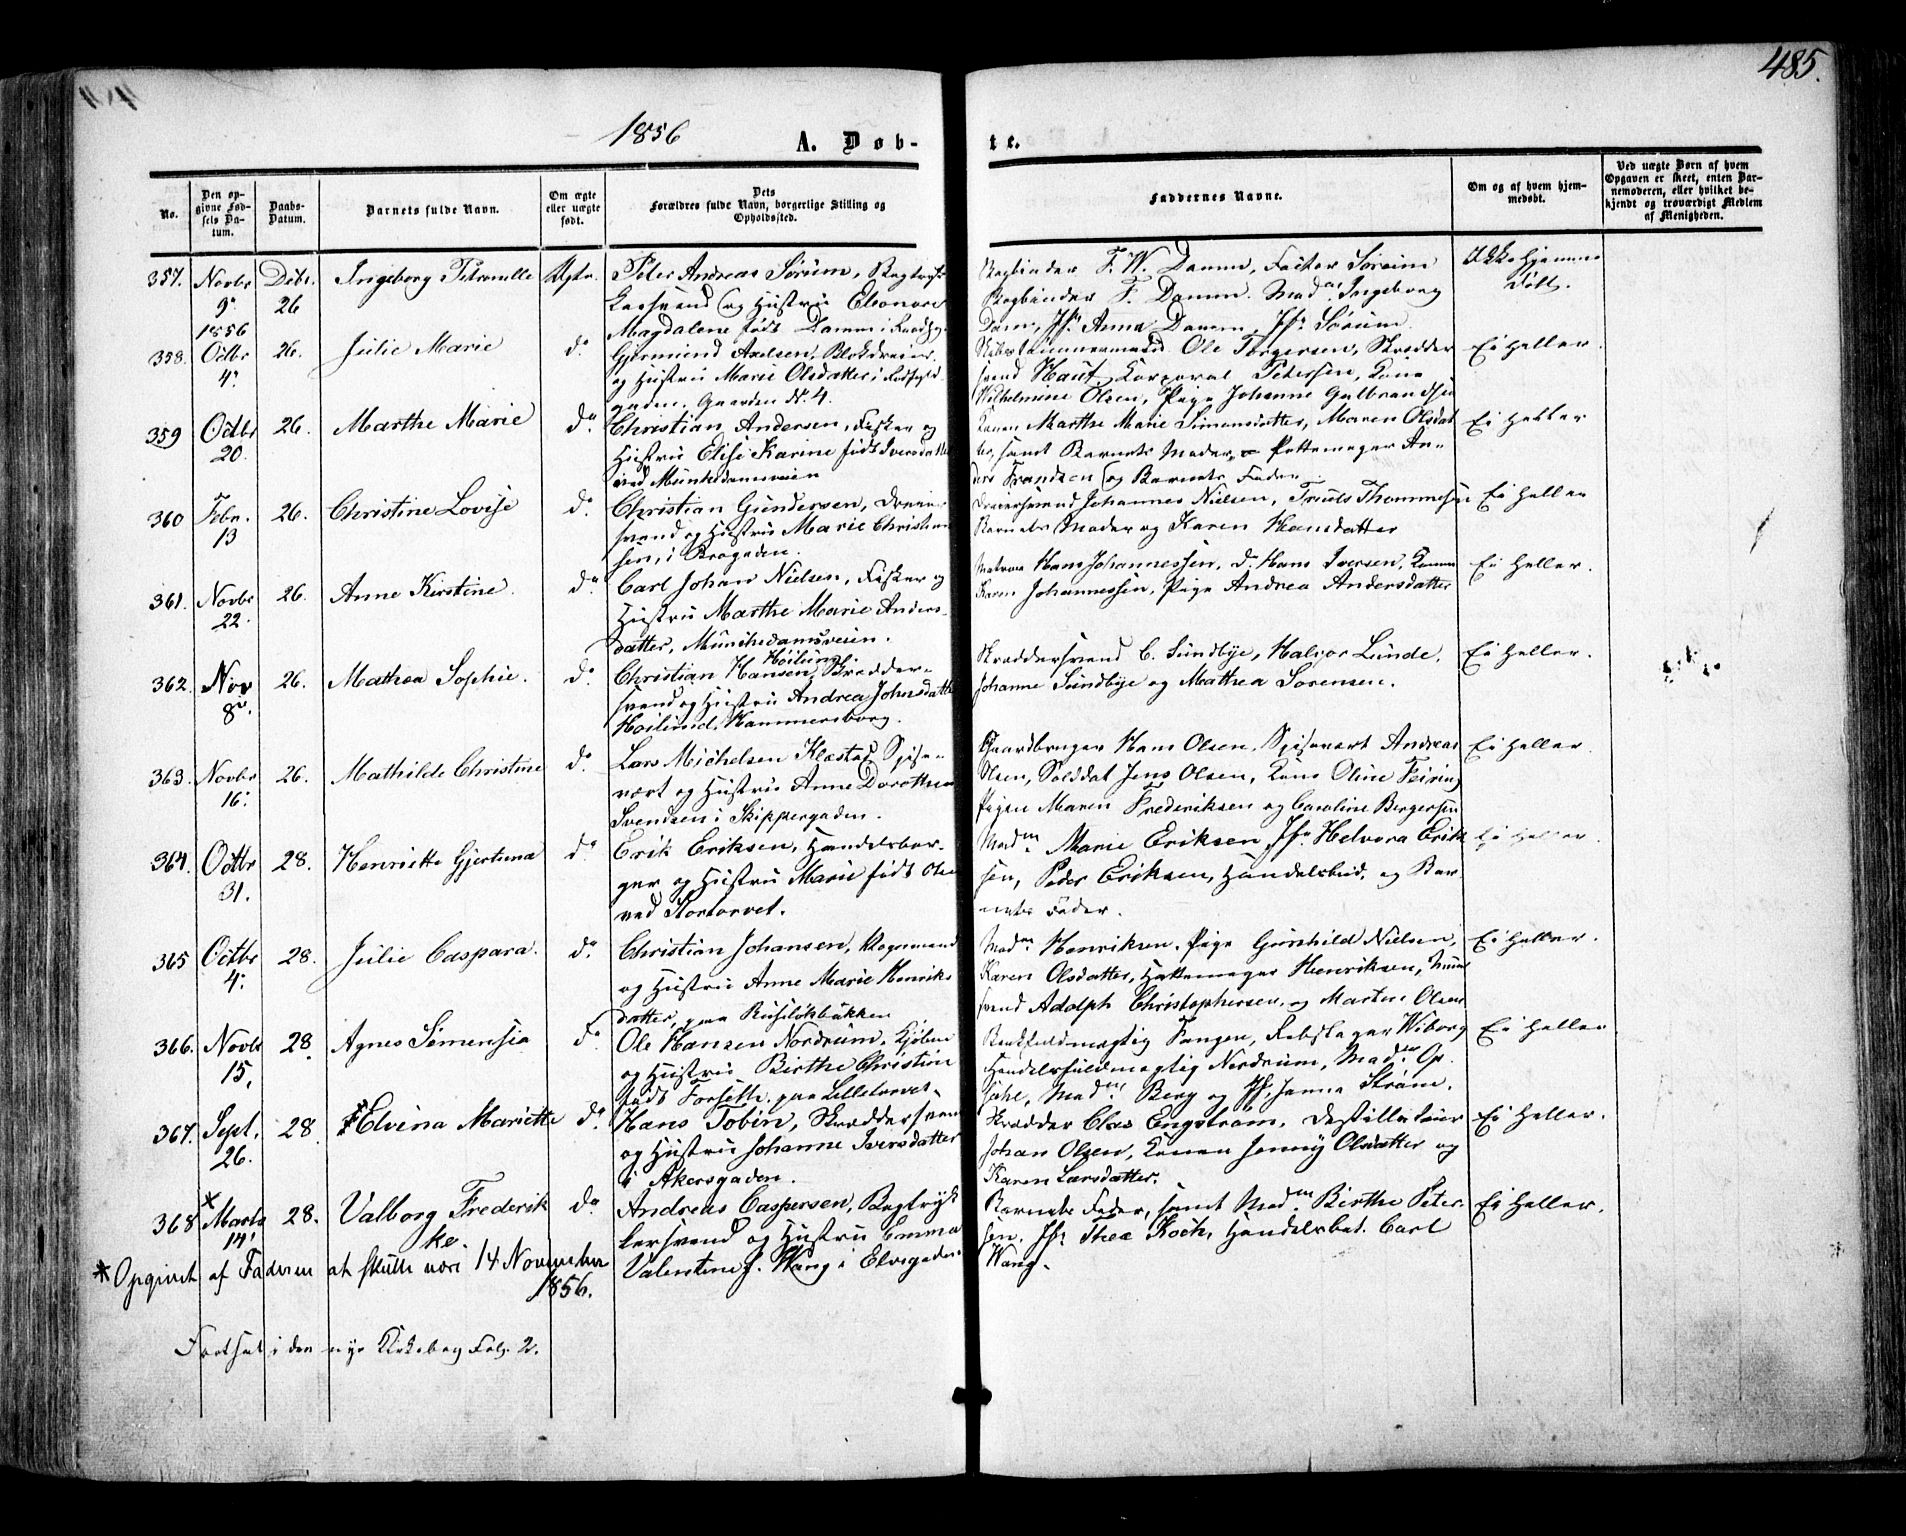 485.
1856
A. Døb-
te.
No.
Den op-
givne Fød-
sels Da-
tum.
Daabs-
Datum.
Barnets fulde Navn.
Om ægte
eller uægte
født.
Dets
Forældres fulde Navn, borgerlige Stilling og
Opholdssted.
Faddernes Navne.
Om og af hvem hjem-
medøbt.
Ved uægte Børn af hvem
Opgaven er skeet, enten Bar-
nemoderen, eller hvilket be-
kjendt og troværdigt Medlem
af Menigheden.
357. Novbr 9. 1856 Debr. 26 Ingeborg Petronelle Ægte.
Peter Andreas Sørum, Bogtryk-
kersvend og Hustru Eleonore
Magdalene født Damm i
Bogbinder F. W. Damm, Factor Sørum
Bogbinder F. Damm. Mad.n Ingeborg
Damm, Jfr. Anna Damm, Jfr. Sørum.
Ikke Hjemme
døbt.
358. Octbr 4. 26. Julie Marie do
Gjermund Axelsen, Blokdreier
og Hustru Marie Olsdatter i
gaden, Gaarden N. 4.
Tømmermand Ole Torgersen, Skrædder
svend Hauf, Corporal Petersen, Kone
Wilhelmine Olsen, Pige Johanne Gulbrandsen
Ei Heller.
359 Octbr 20. 26. Marthe Marie do
Christian Andersen, Fisker og
Hustru Elise Karine født Iversdatter
ved Munkedamsveien
Konen Marthe Marie Simonsdatter, Maren Olsdat
ter, samt Barnets Moder, Pottemager An-
ders Frandsen og Barnets Fader
Ei Heller
360 Febr. 13 26. Christine Lovise do
Christian Gundersen, Dreier
svend og Hustru Marie Christian
sen, i Brogaden.
Dreiersvend Johannes Nielsen, Truls Thommesen
Barnets Moder og Karen Hansdatter
Ei Heller
361. Novbr 22. 26. Anne Kirstine. do
Carl Johan Nielsen, Fisker og
Hustru Marthe Marie Anders-
datter, Munkedamsveien.
Matros Hans Johannessen, Do Hans Iversen, Konen
Karen Johannessen, Pige Andrea Andersdatter
Ei Heller.
362. Nov 8. 26. Mathea Sophie. do
Høilund
Christian Hansen, Skrædder-
svend og Hustru Andrea Johnsdatter
Høilund, Hammersborg.
Skræddersvend C. Sundbye, Halvor Lunde,
Johanne Sundbye og Mathea Sørensen.
Ei Heller.
363. Novbr 16. 26. Mathilde Christine do
Lars Michelsen Klæstad, Spise-
vært og Hustru Anne Dorothea
Svendsen i Skippergaden.
Gaardbruger Hans Olsen, Spisevært Andreas
Olsen, Soldat Jens Olsen, Kone Oline Feiring
Pigen Maren Frederiksen og Caroline Bergersen
Ei Heller.
364. Octbr 31. 28. Henriette Gjertine do
Erik Eriksen, Handelsbor-
ger og Hustru Marie født Olsen
ved Stortorvet.
Mad.n Marie Eriksen, Jfr. Helvora Erik
sen, Peder Eriksen, Handelsbud, og Bar
nets Fader.
Ei Heller
365 Octbr 4. 28. Julie Caspara. do
Christian Johansen, Vognmand
og Hustru Anne Marie Henriks
datter, paa Ruseløkbakken
Mad.n Henriksen, Pige Gunhild Nielsen,
Karen Olsdatter, Hattemager Henriksen, Muur
svend Adolph Christophersen og Martin Olsen
Ei Heller.
366. Novbr 15. 28. Agnes Simensia do
Ole Hansen Nordrum, Kjøbm
og Hustru Birthe Christine
født Forseth, paa Lilletorvet.
Fuldmægtig Fangen, Rebslager Wiborg
Handelsfuldmægtig Nordrum, Mad.n Op
sahl, Mad.n Berg og Jfr. Janna Strøm.
Ei Heller
367. Sept. 26. 28. Elvina Mariette do
Hans Tobin, Skræddersvend
og Hustru Johanne Iversdatter
i Akersgaden.
Skrædder Clas Engstrøm, Destillateur
Johan Olsen, Konen Jenny Olsdatter og
Karen Larsdatter.
Ei Heller.
368 * Marts 14. 28. Valborg Frederik
ke. do
Andreas Caspersen, Bogtryk
kersvend og Hustru Emma
Valentine f. Wang i Elvegaden.
Barnets Fader, samt Mad.n Birthe Peter
sen, Jfr. Thea Koch, Handelsbet. Carl
Wang.
Ei Heller.
* Opgivet af Faderen at skulle være 14 November
1856.
Fortsat i den nye Kirkebog Fol. 2.